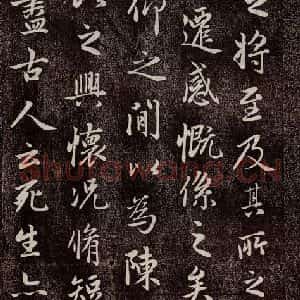 之將至及其所之
遷感慨係之矣
仰之間以為陳
以之興懷況脩短
盡古人云死生亦
shufawang.CN